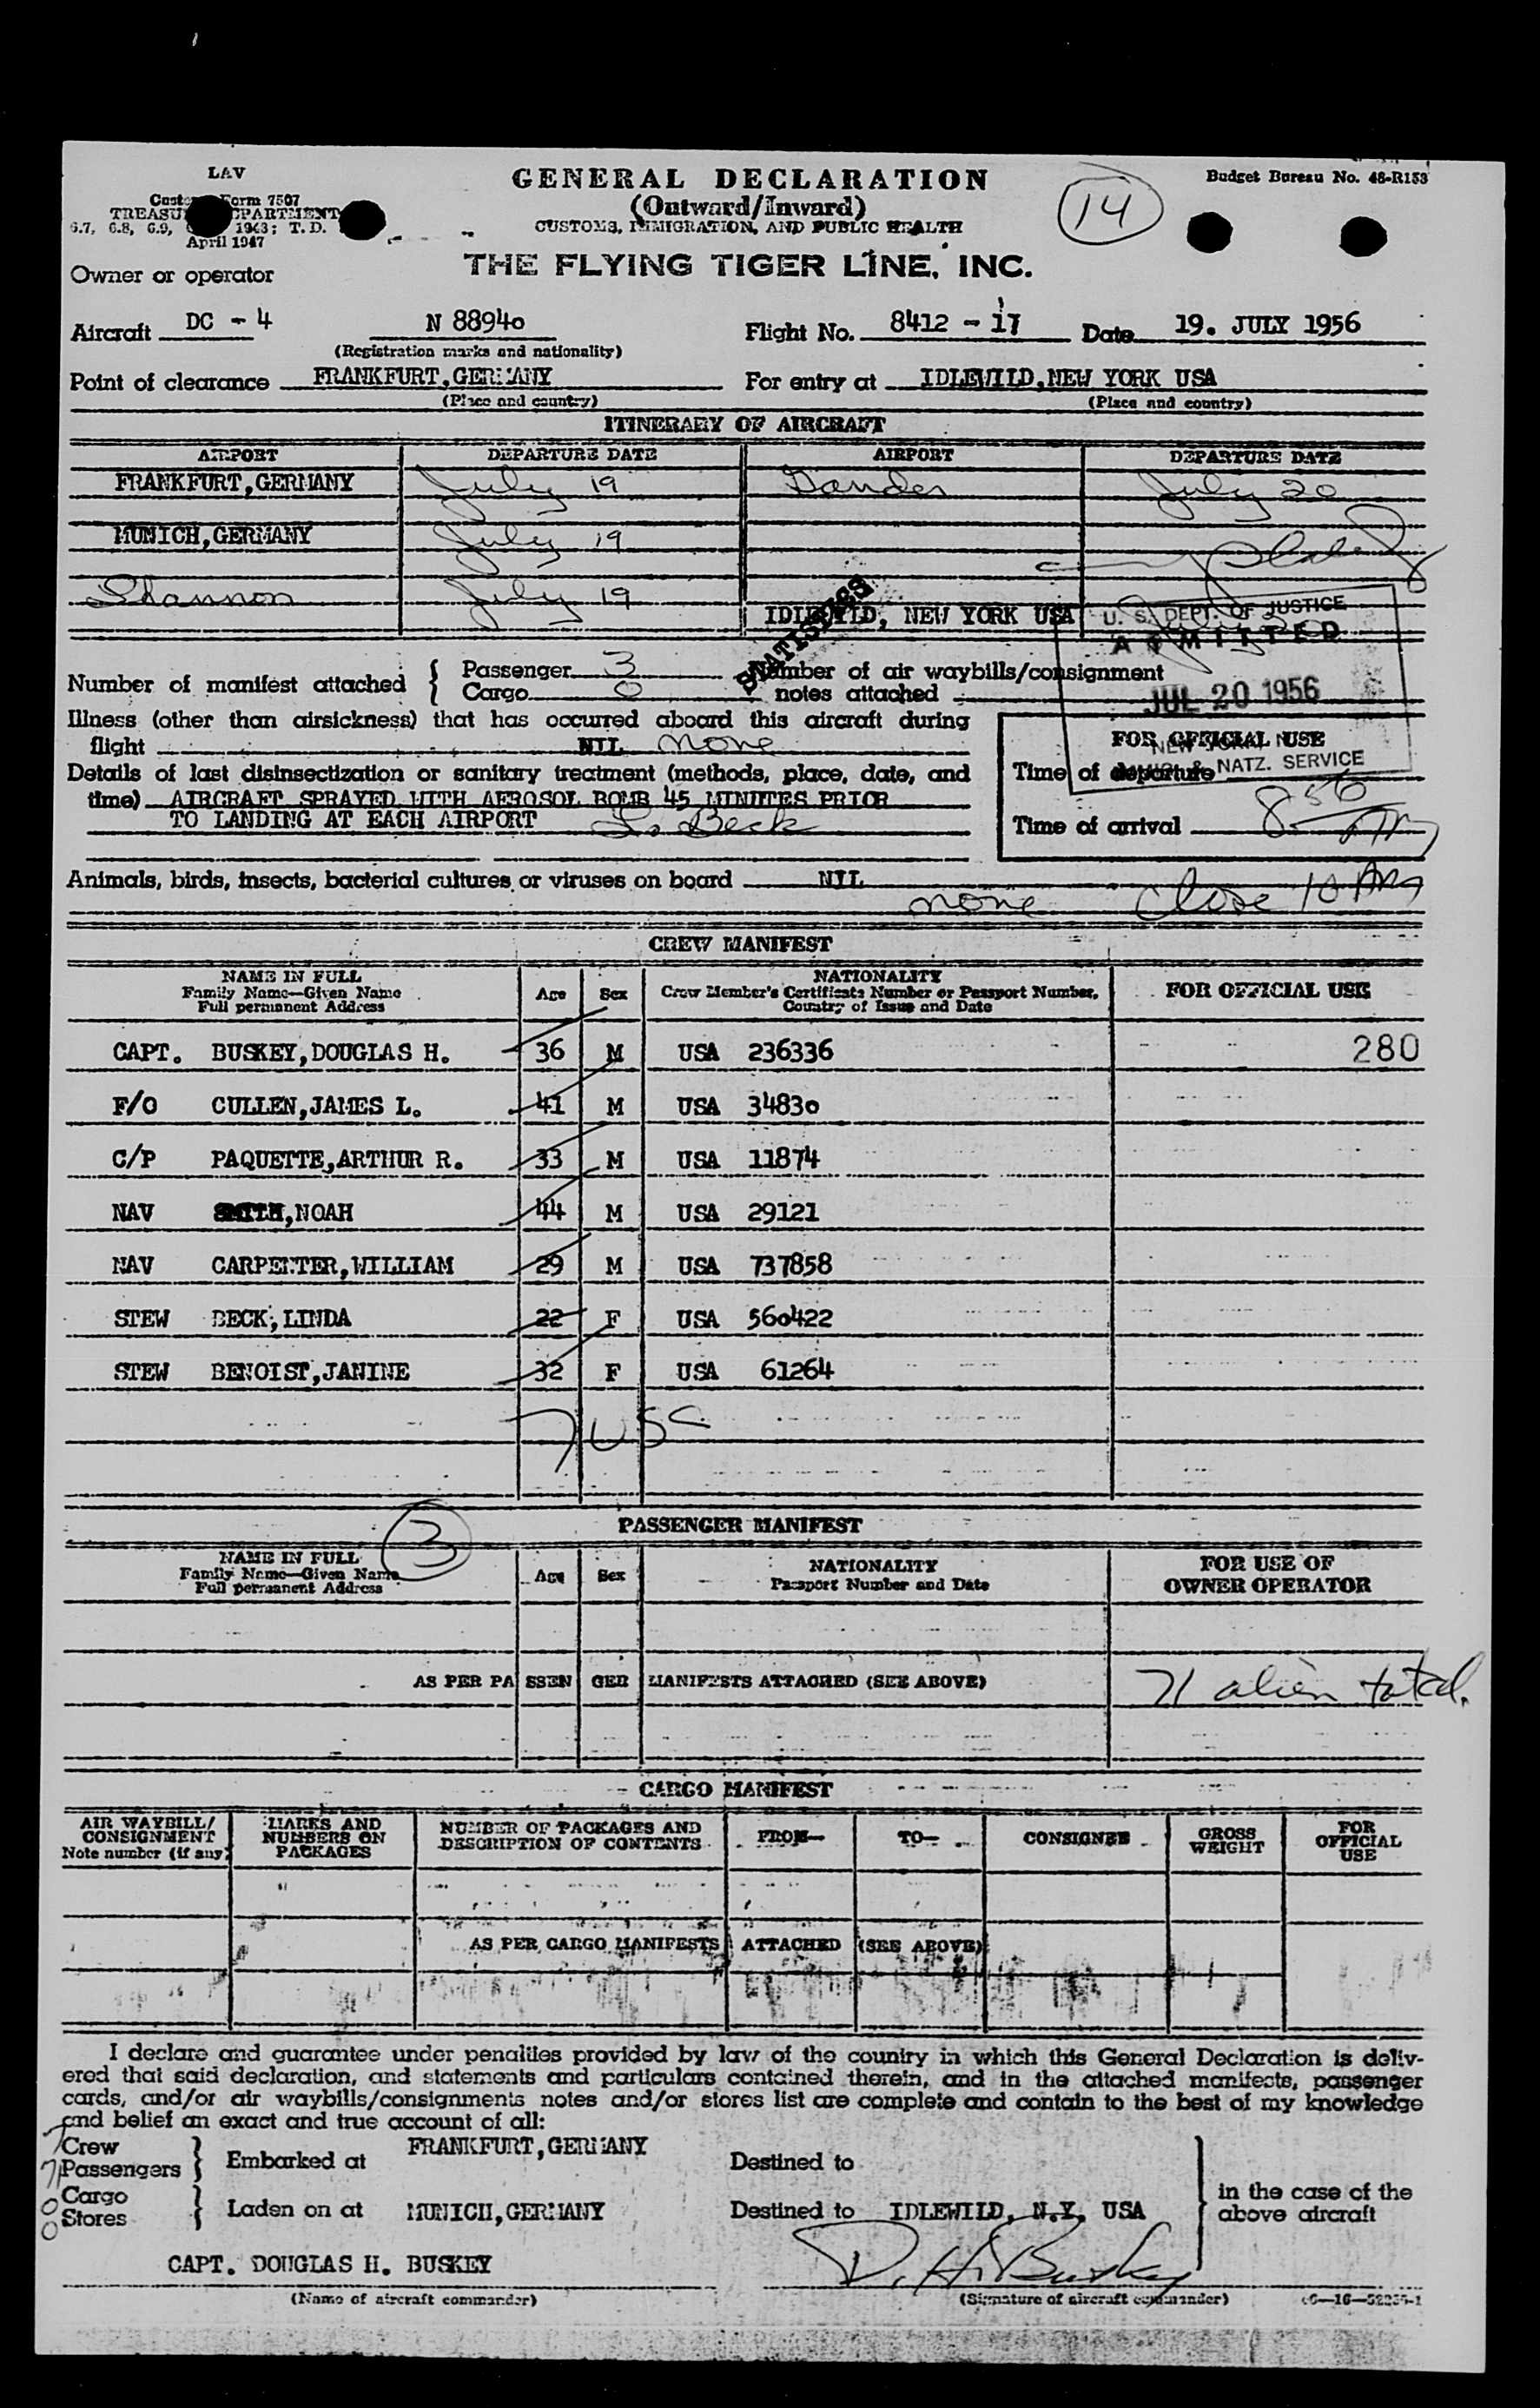 LAV
Form 7507
GENERAL DECLARATION
Budget Bureau No. 48-R153
(Outward/Inward)
14
6.7, 6.8, 6.9, 1943; T. D.
April 1947
CUSTOMS, IMMIGRATION, AND PUBLIC HEALTH
Owner or operator
THE FLYING TIGER LINE, INC.
Aircraft DC - 4 N 88940 Flight No. 8412 - 17 Date 19. JULY 1956
(Registration marks and nationality)
Point of clearance FRANKFURT, GERMANY For entry at IDLEWILD, NEW YORK USA
(Place and country) (Place and country)
ITINERARY OF AIRCRAFT
AIRPORT DEPARTURE DATE AIRPORT DEPARTURE DATE
FRANKFURT, GERMANY July 19 Gander July 20
MUNICH, GERMANY July 19
Shannon July 19
IDLEWILD, NEW YORK USA
STATISTICS
U. S. DEPT. OF JUSTICE
ADMITTED
JUL 20 1956
NATZ. SERVICE
Number of manifest attached { Passenger 3 Number of air waybills/consignment
Cargo 0 notes attached
Illness (other than airsickness) that has occurred aboard this aircraft during
flight NIL none
FOR OFFICIAL USE
Details of last disinsectization or sanitary treatment (methods, place, date, and
Time of departure
time) AIRCRAFT SPRAYED WITH AEROSOL BOMB 45 MINUTES PRIOR
TO LANDING AT EACH AIRPORT L. Beck
Time of arrival 8 56 AM
Animals, birds, insects, bacterial cultures or viruses on board NIL
none Close 10 AM
CREW MANIFEST
NAME IN FULL
Family Name—Given Name
Full permanent Address
Age Sex
NATIONALITY
Crew Member's Certificate Number or Passport Number,
Country of Issue and Date
FOR OFFICIAL USE
CAPT. BUSKEY, DOUGLAS H. 36 M USA 236336 280
F/O CULLEN, JAMES L. 41 M USA 34830
C/P PAQUETTE, ARTHUR R. 33 M USA 11874
NAV SMITH, NOAH 44 M USA 29121
NAV CARPENTER, WILLIAM 29 M USA 737858
STEW BECK, LINDA 22 F USA 560422
STEW BENOIST, JANINE 32 F USA 61264
7 USC
PASSENGER MANIFEST
3
NAME IN FULL
Family Name—Given Name
Full permanent Address
Age Sex
NATIONALITY
Passport Number and Date
FOR USE OF
OWNER OPERATOR
AS PER PASSENGER MANIFESTS ATTACHED (SEE ABOVE) 71 alien total.
CARGO MANIFEST
AIR WAYBILL/
CONSIGNMENT
Note number (if any)
MARKS AND
NUMBERS ON
PACKAGES
NUMBER OF PACKAGES AND
DESCRIPTION OF CONTENTS
FROM— TO— CONSIGNEE
GROSS
WEIGHT
FOR
OFFICIAL
USE
AS PER CARGO MANIFESTS ATTACHED (SEE ABOVE)
I declare and guarantee under penalties provided by law of the country in which this General Declaration is deliv-
ered that said declaration, and statements and particulars contained therein, and in the attached manifests, passenger
cards, and/or air waybills/consignments notes and/or stores list are complete and contain to the best of my knowledge
and belief an exact and true account of all:
7 Crew
71 Passengers } Embarked at FRANKFURT, GERMANY Destined to
in the case of the
above aircraft
0 Cargo
0 Stores } Laden on at MUNICH, GERMANY Destined to IDLEWILD, N.Y. USA
CAPT. DOUGLAS H. BUSKEY D. H. Buskey
(Name of aircraft commander) (Signature of aircraft commander)